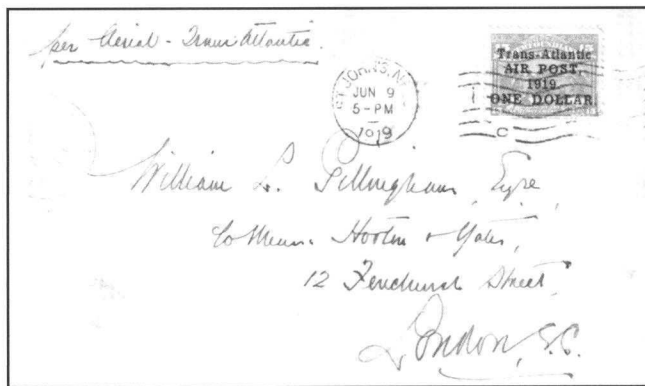 per Aerial - Trans Atlantic.
ST. JOHN'S, N
JUN 9
5-PM
1919
Trans-Atlantic
AIR POST,
1919.
ONE DOLLAR.
C
William L. Gillingham, Esqre
c/o Messrs. Hooten & Yates,
12 Fenchurch Street,
London, E.C.